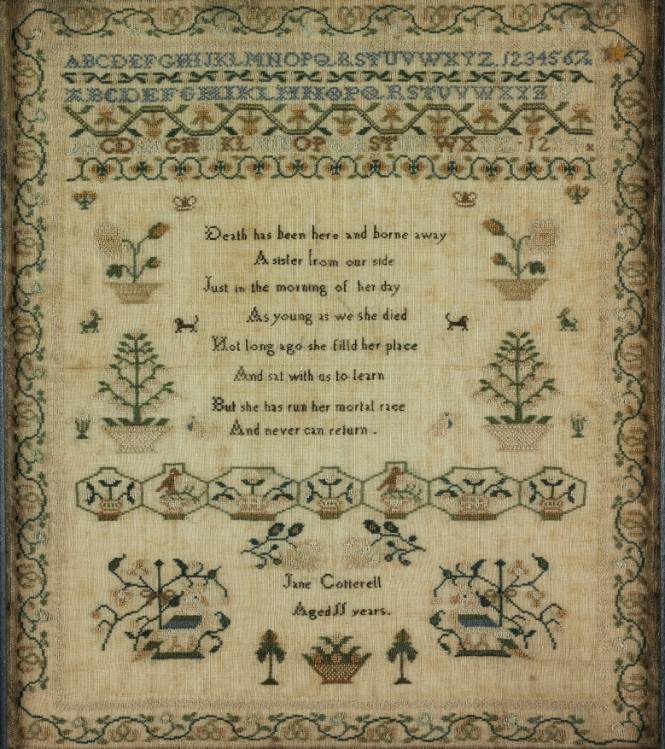 ABCDEFGHIJKLMNOPQRSTUVWXYZ.1234567
ABCDEFGHIKLMNOPQRSTUVWXYZ
CD GH KL OP ST WX 12
Death has been here and borne away
A sister from our side
Just in the morning of her day
As young as we she died
Not long ago she filld her place
And sat with us to learn
But she has run her mortal race
And never can return.
Jane Cotterell
Aged 11 years.